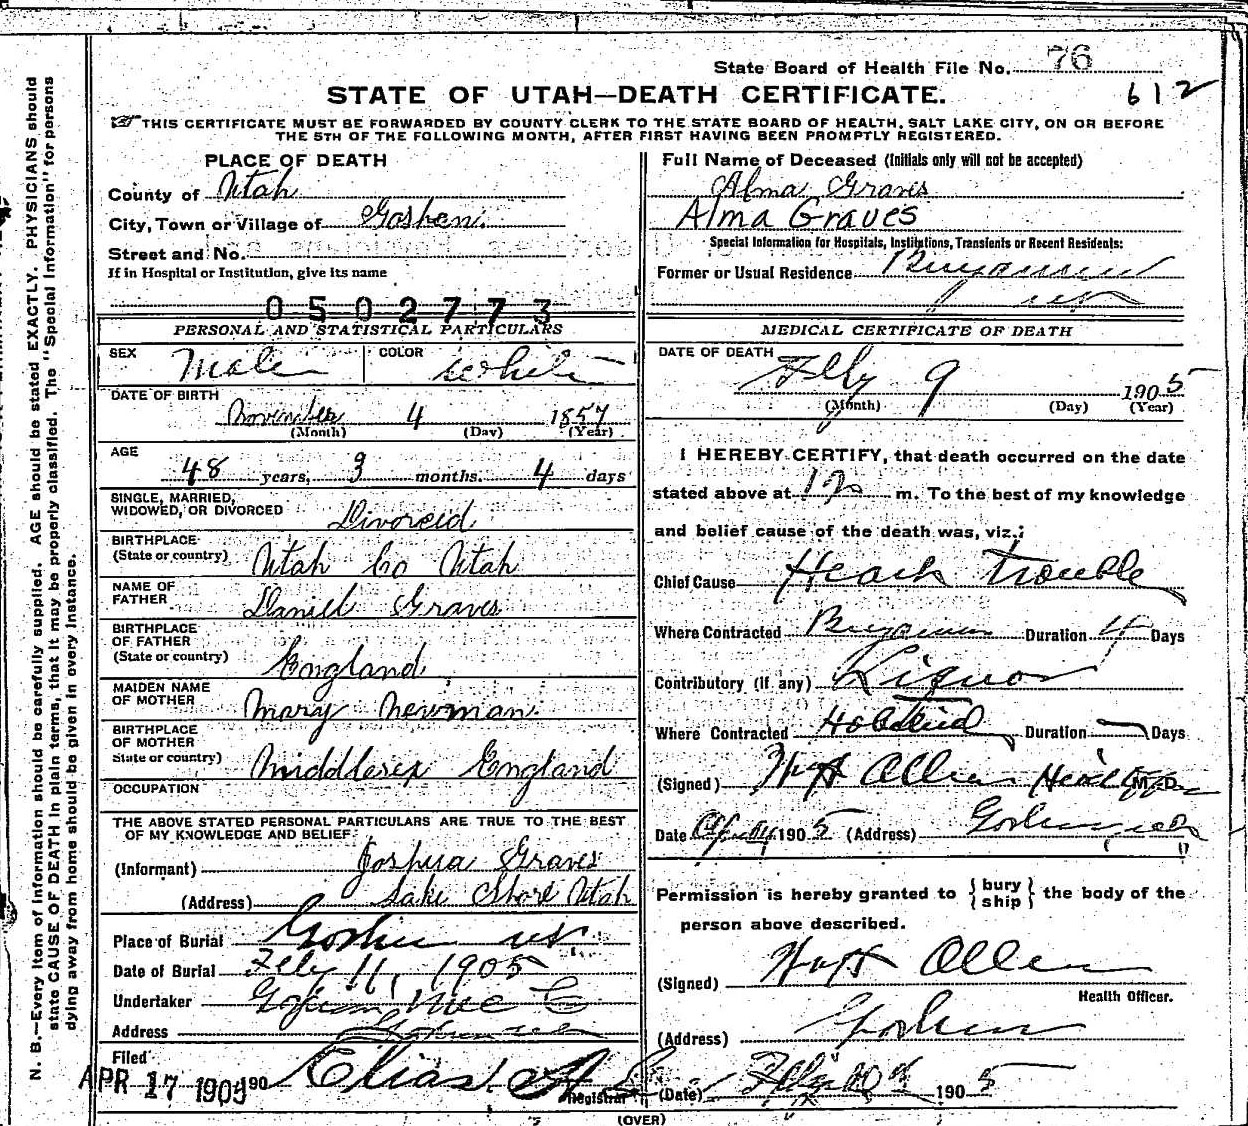 State Board of Health File No. 76
612
STATE OF UTAH—DEATH CERTIFICATE.
THIS CERTIFICATE MUST BE FORWARDED BY COUNTY CLERK TO THE STATE BOARD OF HEALTH, SALT LAKE CITY, ON OR BEFORE
THE 5TH OF THE FOLLOWING MONTH, AFTER FIRST HAVING BEEN PROMPTLY REGISTERED.
N. B.—Every item of information should be carefully supplied. AGE should be stated EXACTLY. PHYSICIANS should
state CAUSE OF DEATH in plain terms, that it may be properly classified. The "Special Information" for persons
dying away from home should be given in every instance.
PLACE OF DEATH
County of Utah
City, Town or Village of Goshen.
Street and No.
If in Hospital or Institution, give its name
0502773
PERSONAL AND STATISTICAL PARTICULARS
SEX Male COLOR white
DATE OF BIRTH
November 4 1857
(Month) (Day) (Year)
AGE
48 years, 3 months. 4 days
SINGLE, MARRIED,
WIDOWED, OR DIVORCED Divorceid
BIRTHPLACE
(State or country) Utah Co Utah
NAME OF
FATHER Daniel Graves
BIRTHPLACE
OF FATHER
(State or country) England
MAIDEN NAME
OF MOTHER Mary Newman.
BIRTHPLACE
OF MOTHER
State or country) Middlesex England
OCCUPATION
THE ABOVE STATED PERSONAL PARTICULARS ARE TRUE TO THE BEST
OF MY KNOWLEDGE AND BELIEF:
(Informant) Joshua Graves
(Address) Lake Shore Utah
Place of Burial Goshen
Date of Burial Feby 11, 1905
Undertaker
Address Goshen
Filed
APR 17 1905 190 Elias
Registrar
Full Name of Deceased (Initials only will not be accepted)
Alma Graves
Alma Graves
Special Information for Hospitals, Institutions, Transients or Recent Residents:
Former or Usual Residence Benjamin
MEDICAL CERTIFICATE OF DEATH
DATE OF DEATH
Feby 9 1905
(Month) (Day) (Year)
I HEREBY CERTIFY, that death occurred on the date
stated above at m. To the best of my knowledge
and belief cause of the death was, viz.;
Chief Cause Heart Trouble
Where Contracted Benjamin Duration 4 Days
Contributory (If any) Liquor
Where Contracted Duration Days
(Signed) Allen M. D.
Date 1905 (Address) Goshen
Permission is hereby granted to { bury
ship } the body of the
person above described.
(Signed) Allen
Health Officer.
(Address) Goshen
(Date) Feby 1905
(OVER)